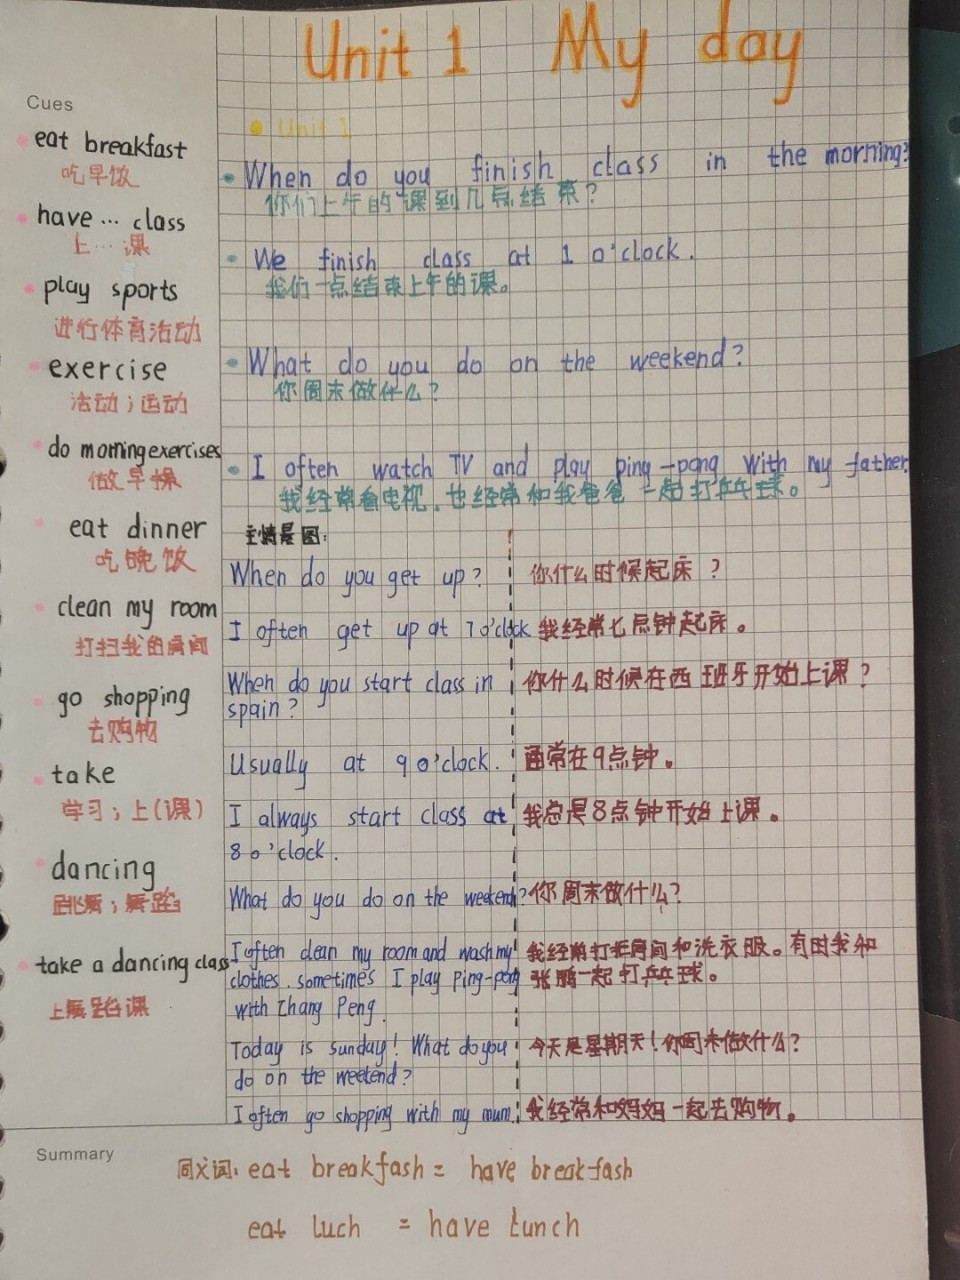 Unit 1 My day
Cues
eat breakfast
吃早饭
have … class
上…课
play sports
进行体育活动
exercise
活动；运动
do morning exercises
做早操
eat dinner
吃晚饭
clean my room
打扫我的房间
go shopping
去购物
take
学习；上（课）
dancing
跳舞；舞蹈
take a dancing class
上舞蹈课
Unit 1
When do you finish class in the morning?
你们上午的课到几点结束？
We finish class at 1 o'clock.
我们一点结束上午的课。
What do you do on the weekend?
你周末做什么？
I often watch TV and play ping-pong with my father.
我经常看电视，也经常和我爸爸一起打乒乓球。
主情景图：
When do you get up? 你什么时候起床？
I often get up at 7 o'clock 我经常七点钟起床。
When do you start class in 你什么时候在西班牙开始上课？
spain?
Usually at 9 o'clock. 通常在9点钟。
I always start class at 我总是8点钟开始上课。
8 o'clock.
What do you do on the weekend? 你周末做什么？
I often clean my room and wash my 我经常打扫房间和洗衣服。有时我和
clothes. sometimes I play ping-pong 张鹏一起打乒乓球。
with Zhang Peng.
Today is sunday! What do you 今天是星期天！你周末做什么？
do on the weekend?
I often go shopping with my mum. 我经常和妈妈一起去购物。
Summary
同义词：eat breakfash = have breakfash
eat luch = have lunch